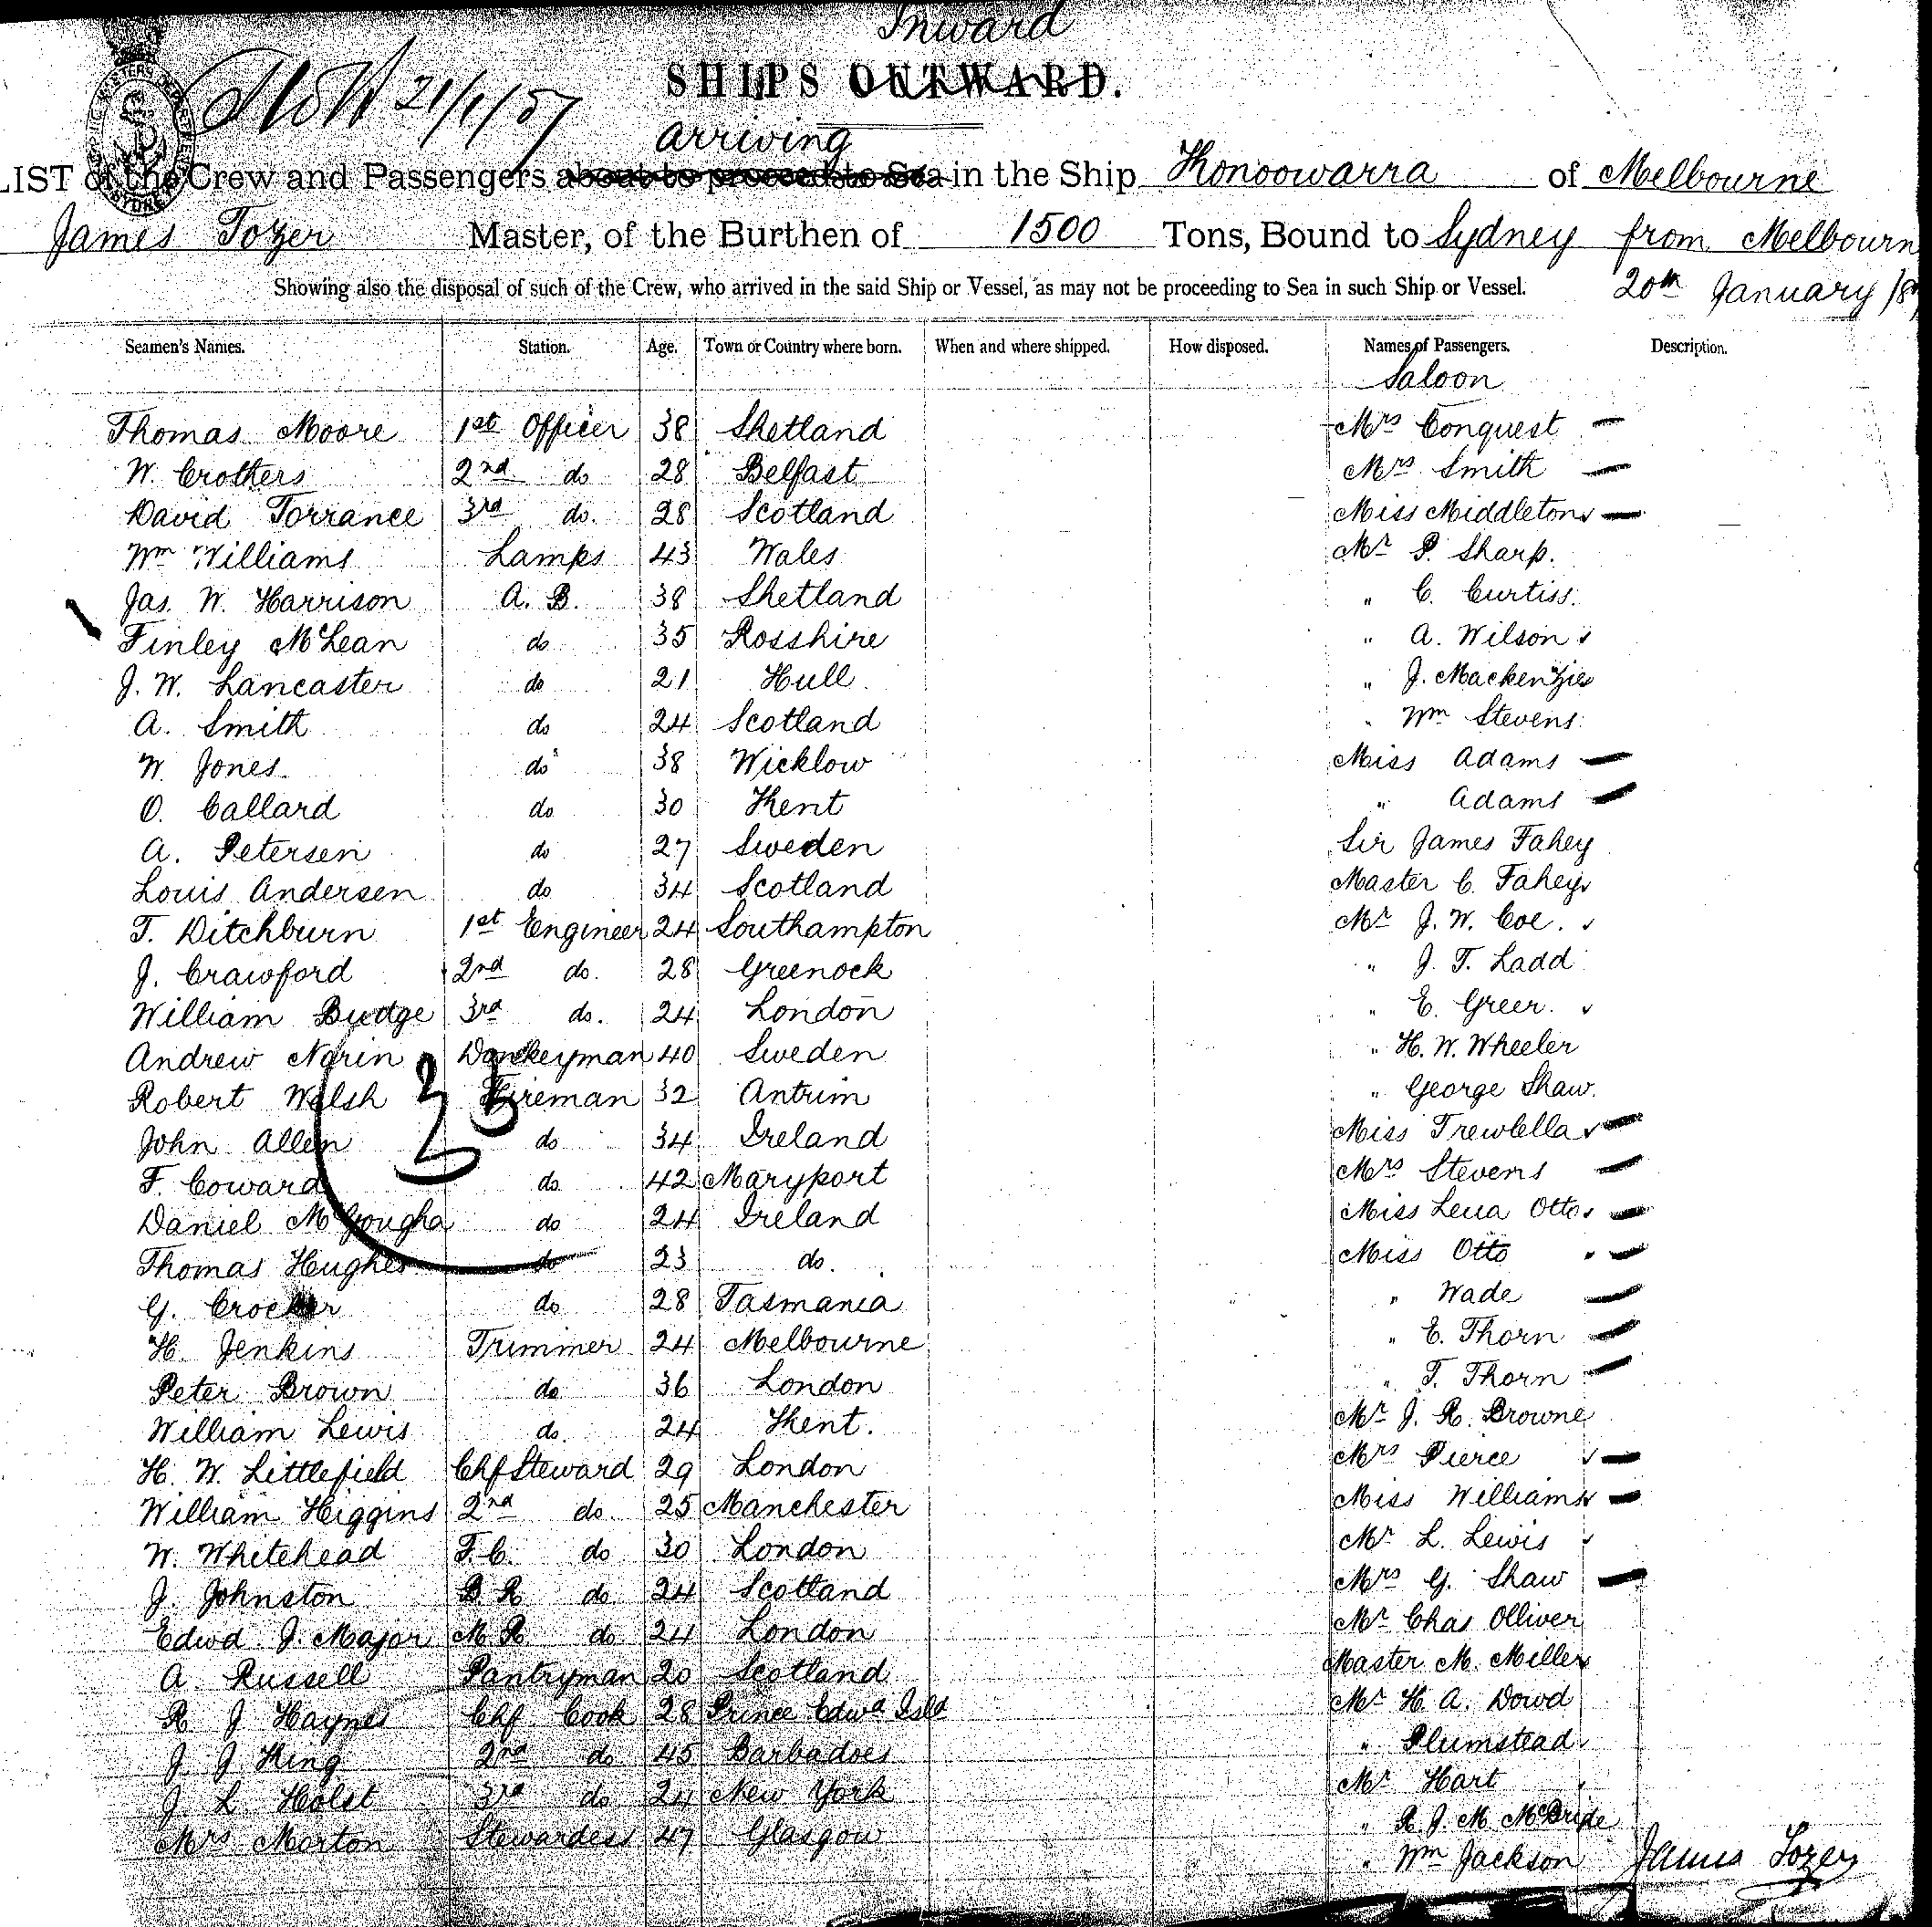 Inward
SHIPS OUTWARD.
21/1/87
arriving
LIST of the Crew and Passengers about to proceed to Sea in the Ship Konoowarra of Melbourne
James Tozer Master, of the Burthen of 1500 Tons, Bound to Sydney from Melbourn
Showing also the disposal of such of the Crew, who arrived in the said Ship or Vessel, as may not be proceeding to Sea in such Ship or Vessel. 20th January 18
Seamen's Names. Station. Age. Town or Country where born. When and where shipped. How disposed. Names of Passengers. Description.
Saloon
Thomas Moore 1st Officer 38 Shetland Mrs Conquest
W. Crothers 2nd do 28 Belfast Mrs Smith
David Torrance 3rd do. 28 Scotland Miss Middleton
Wm Williams Lamps 43 Wales Mr P. Sharp.
Jas. W. Harrison A. B. 38 Shetland " C. Curtiss.
Finley McLean do 35 Rosshire " A. Wilson
J. W. Lancaster do 21 Hull " J. Mackenzie
A. Smith do 24 Scotland " Wm Stevens
W Jones do 38 Wicklow Miss Adams
O. Callard do 30 Kent " Adams
A. Petersen do 27 Sweden Sir James Fahey
Louis Andersen do 34 Scotland Master C. Fahey
T. Ditchburn 1st Engineer 24 Southampton Mr J. W. Coe.
J. Crawford 2nd do. 28 Greenock " J. T. Ladd
William Budge 3rd do. 24 London " E. Greer.
Andrew Norin Donkeyman 40 Sweden " H. W. Wheeler
Robert Walsh Fireman 32 Antrim " George Shaw.
John Allen do 34 Ireland Miss Trewlella
F. Coward do 42 Maryport Mrs Stevens
Daniel McGougha do 24 Ireland Miss Lena Otto
Thomas Hughes do 23 do. Miss Otto
G. Crocker do 28 Tasmania " Wade
H. Jenkins Trimmer 24 Melbourne " E. Thorn
Peter Brown do 36 London " T. Thorn
William Lewis do. 24 Kent. Mr J. R. Browne
H. W. Littlefield Chf Steward 29 London Mrs Pierce
William Higgins 2nd do 25 Manchester Miss Williams
W. Whitehead F.C. do 30 London Mr L. Lewis
J. Johnston B R do 24 Scotland Mrs G. Shaw
Edwd J. Major M R do 24 London Mr Chas Olliver
A. Russell Pantryman 20 Scotland Master M. Miller
R J Haynes Chf Cook 28 Prince Edwd Isld Mr H. A. Dowd
J J King 2nd do 45 Barbadoes " Plumstead
J. L. Holst 3rd do 24 New York Mr Hart
Mrs Morton Stewardess 47 Glasgow " R. J. M. McBride
" Wm Jackson
James Tozer